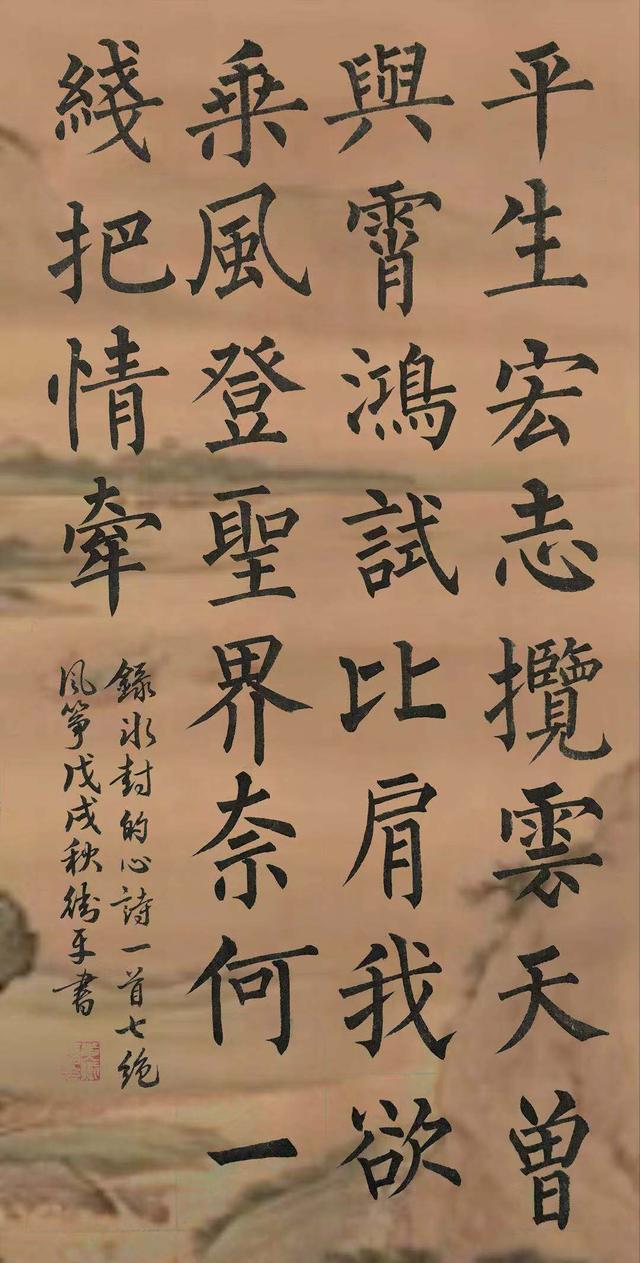 平生宏志攬雲天曾
與霄鴻試比肩我欲
乗風登聖界奈何一
綫把情牽
錄冰封的心詩一首七絶
风筝戊戌秋衛平書